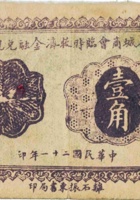 城商會臨時救濟金融兌
壹角
中華民國二十一年印
離石張東書局印